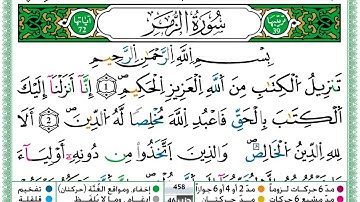 ترتيبها 39 سُورَةُ الزُّمَرِ آياتها
بِسْمِ اللَّهِ الرَّحْمَٰنِ الرَّحِيمِ
تَنزِيلُ الْكِتَٰبِ مِنَ اللَّهِ الْعَزِيزِ الْحَكِيمِ ۝1 إِنَّآ أَنزَلْنَآ إِلَيْكَ
الْكِتَٰبَ بِالْحَقِّ فَاعْبُدِ اللَّهَ مُخْلِصًا لَّهُ الدِّينَ ۝2 أَلَا
لِلَّهِ الدِّينُ الْخَالِصُ وَالَّذِينَ اتَّخَذُوا مِن دُونِهِ أَوْلِيَآءَ
مدّ 6 حركات لزوماً مدّ 2 أو 4 أو 6 جوازاً 458 إخفاء، ومواقع الغُنَّة (حركتان) تفخيم
مدّ مشبع 6 حركات مدّ حركتان إدغام، وما لا يُلفظ قلقلة